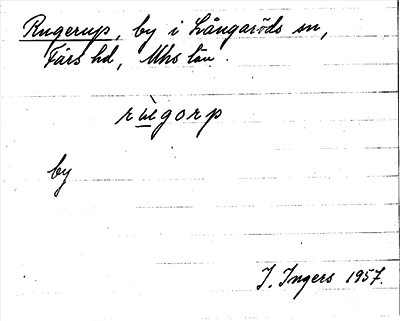 Rugerup, by i Långaröds sn,
Färs hd, Mhs län.
rùegorp
by
I. Ingers 1957.